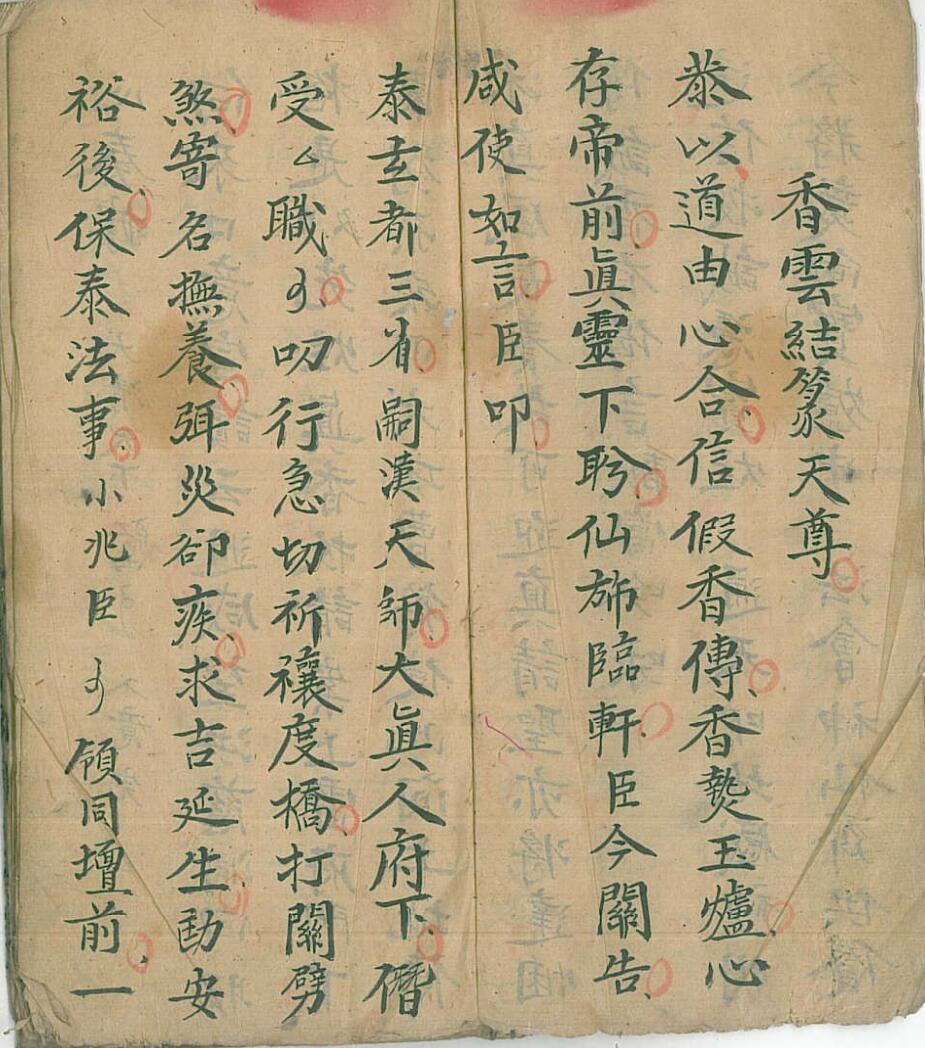 香雲結篆天尊
恭以道由心合信假香傳香爇玉爐心
存帝前眞靈下盻仙斾臨軒臣今關告
咸使如言臣叩
泰玄都三省嗣漢天師大眞人府下僭
受厶職 叨行急切祈禳度橋打關劈
煞寄名撫養弭災卻疾求吉延生劻安
裕後保泰法事小兆臣 領同壇前一